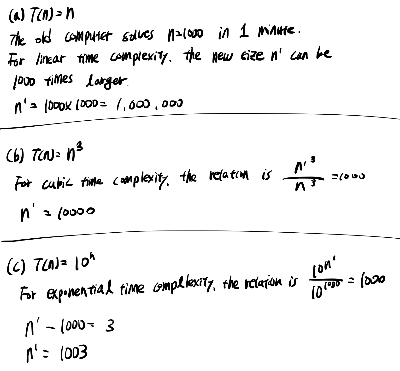 (a) T(n) = n
The old computer solves n=1000 in 1 minute.
For linear time complexity, the new size n' can be
1000 times larger.
n' = 1000 x 1000 = 1,000,000
(b) T(n) = n³
For cubic time complexity, the relation is n'³/n³ = 1000
n' = 10000
(c) T(n) = 10ⁿ
For exponential time complexity, the relation is 10ⁿ'/10¹⁰⁰⁰ = 1000
n' - 1000 = 3
n' = 1003